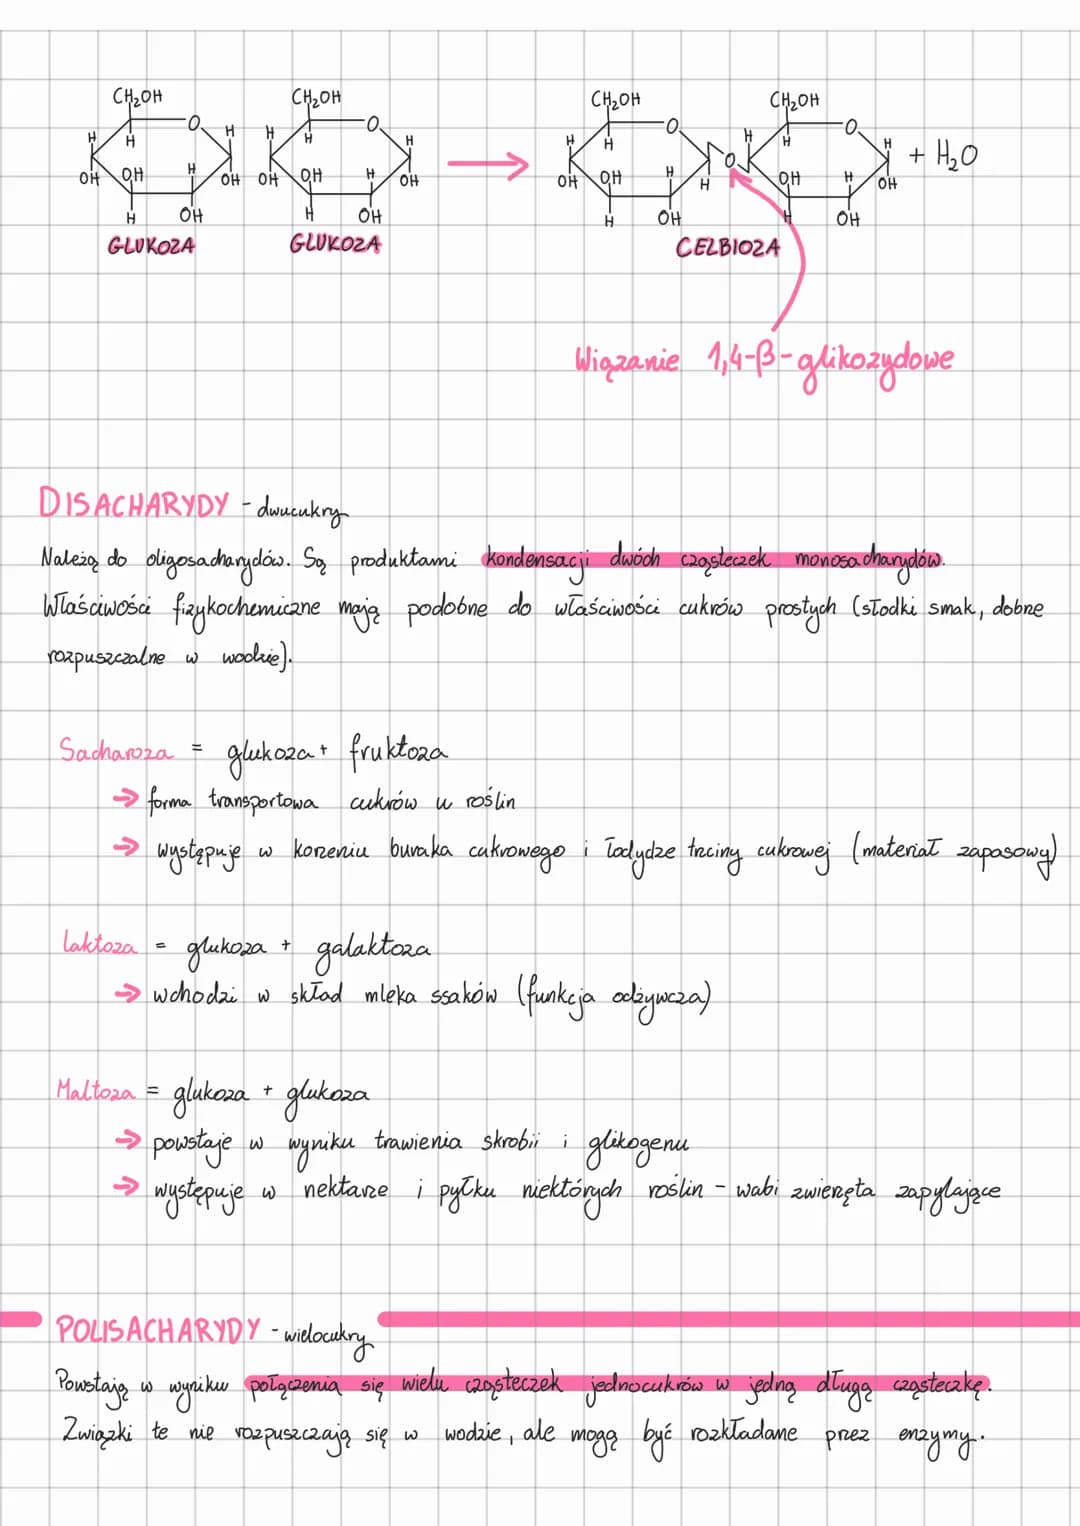 CH₂OH CH₂OH CH₂OH CH₂OH
O O O O
H H H H H H H H H H H + H₂O
OH OH H OH OH OH H OH OH OH H H O OH H OH
H OH H OH H OH H OH
GLUKOZA GLUKOZA CELBIOZA
Wiązanie 1,4-β-glikozydowe
DISACHARYDY - dwucukry
Należą do oligosacharydów. Są produktami kondensacji dwóch cząsteczek monosacharydów.
Właściwości fizykochemiczne mają podobne do właściwości cukrów prostych (słodki smak, dobne
rozpuszczalne w wodzie).
Sacharoza = glukoza + fruktoza
→ forma transportowa cukrów u roślin
→ występuje w korzeniu buraka cukrowego i łodydze trzciny cukrowej (materiał zapasowy)
Laktoza = glukoza + galaktoza
→ wchodzi w skład mleka ssaków (funkcja odżywcza)
Maltoza = glukoza + glukoza
→ powstaje w wyniku trawienia skrobii i glikogenu
→ występuje w nektarze i pyłku niektórych roślin - wabi zwierzęta zapylające
POLISACHARYDY - wielocukry
Powstają w wyniku połączenia się wielu cząsteczek jednocukrów w jedną długą cząsteczkę.
Związki te nie rozpuszczają się w wodzie, ale mogą być rozkładane przez enzymy.